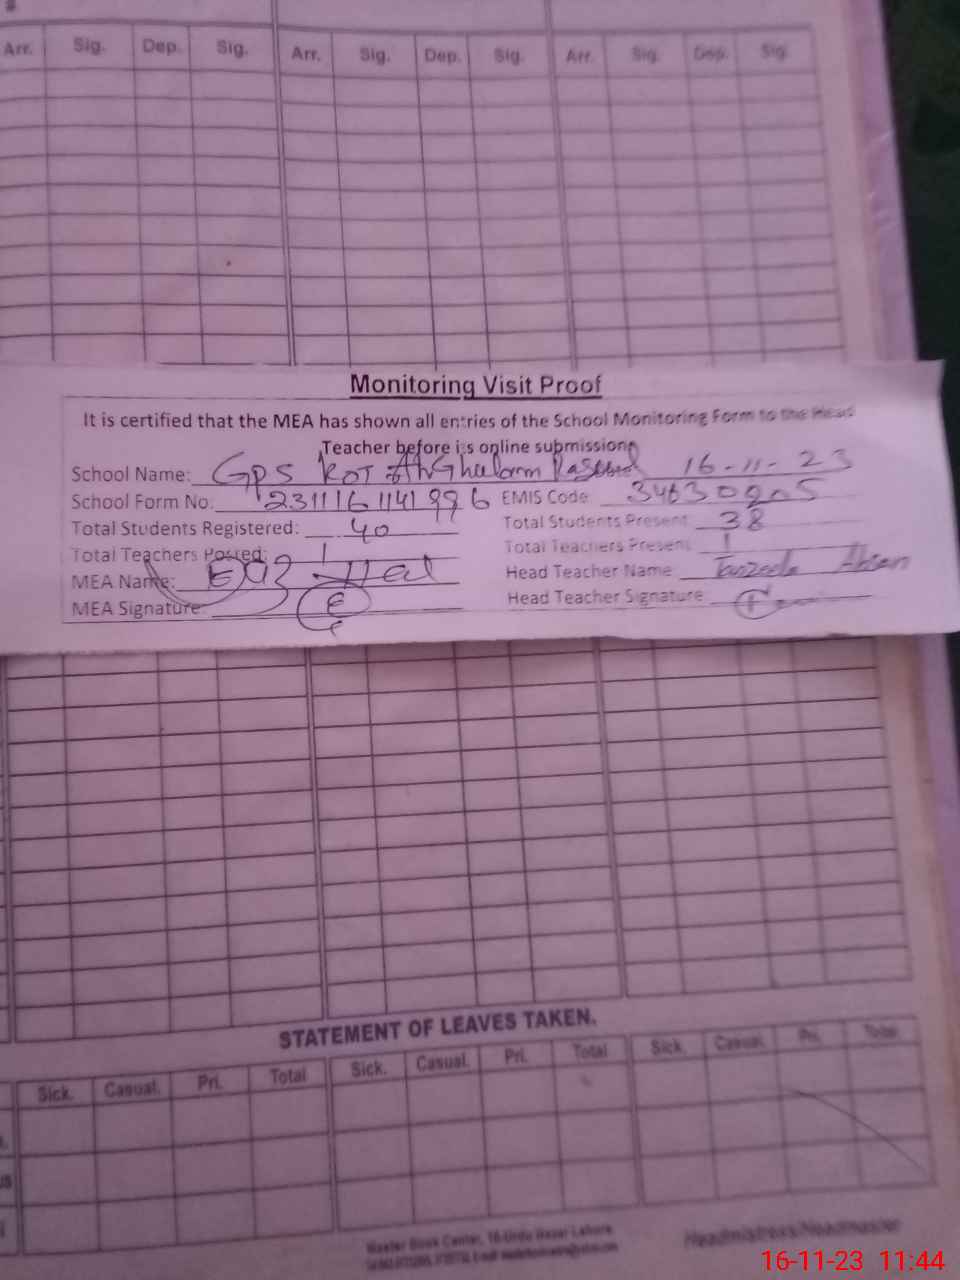 Arr. Sig. Dep. Sig. Arr. Sig. Dep. Sig. Arr. Sig. Dep. Sig.
Monitoring Visit Proof
It is certified that the MEA has shown all entries of the School Monitoring Form to the Head
Teacher before its online submission
School Name: GPS Kot 16-11-23
School Form No: EMIS Code 34630205
Total Students Registered: 40 Total Students Present 38
Total Teachers Posted: 1 Total Teachers Present 1
MEA Name: Head Teacher Name Ahsan
MEA Signature: Head Teacher Signature
STATEMENT OF LEAVES TAKEN.
Sick. Casual. Pri. Total Sick. Casual. Pri. Total Sick. Casual. Pri. Total
Master Book Center, 16-Urdu Bazar Lahore
Headmistress/Headmaster
16-11-23 11:44